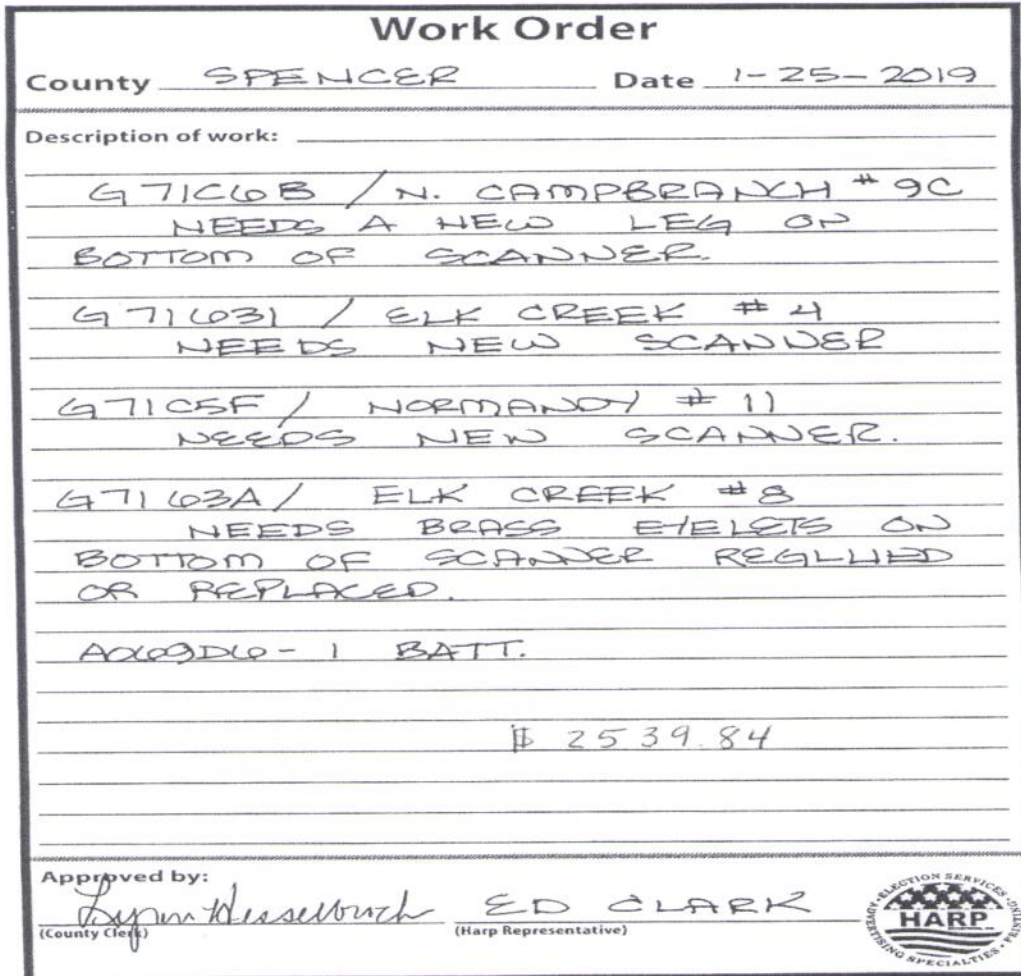 Work Order
County SPENCER Date 1-25-2019
Description of work:
G71C6B / N. CAMPBRANCH #9C
NEEDS A NEW LEG ON
BOTTOM OF SCANNER.
G71631 / ELK CREEK #4
NEEDS NEW SCANNER
G71C5F / NORMANDY #11
NEEDS NEW SCANNER.
G7163A / ELK CREEK #8
NEEDS BRASS EYELETS ON
BOTTOM OF SCANNER REGLUED
OR REPLACED.
- 1 BATT.
$ 2539.84
Approved by:
Lynn Hesselbrock ED CLARK
(County Clerk) (Harp Representative)
ELECTION SERVICES • PRINTING • ADVERTISING SPECIALTIES •
HARP